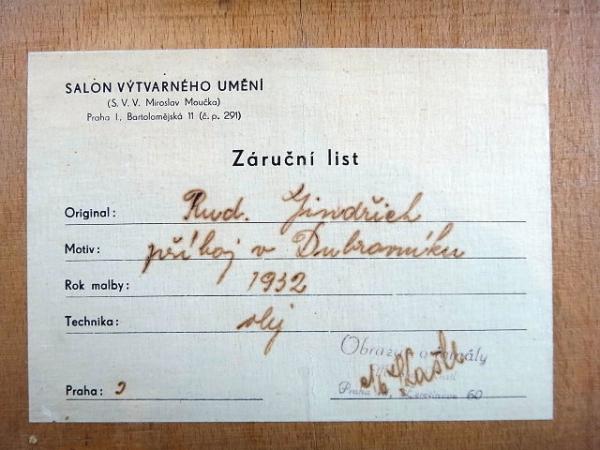 SALON VÝTVARNÉHO UMĚNÍ
(S. V. V. Miroslav Moučka)
Praha I., Bartolomějská 11 (č. p. 291)
Záruční list
Original: Rud. Jindřich
Motiv: příboj v Dubrovníku
Rok malby: 1932
Technika: olej
Obrazy originály
Praha: 
Praha 60